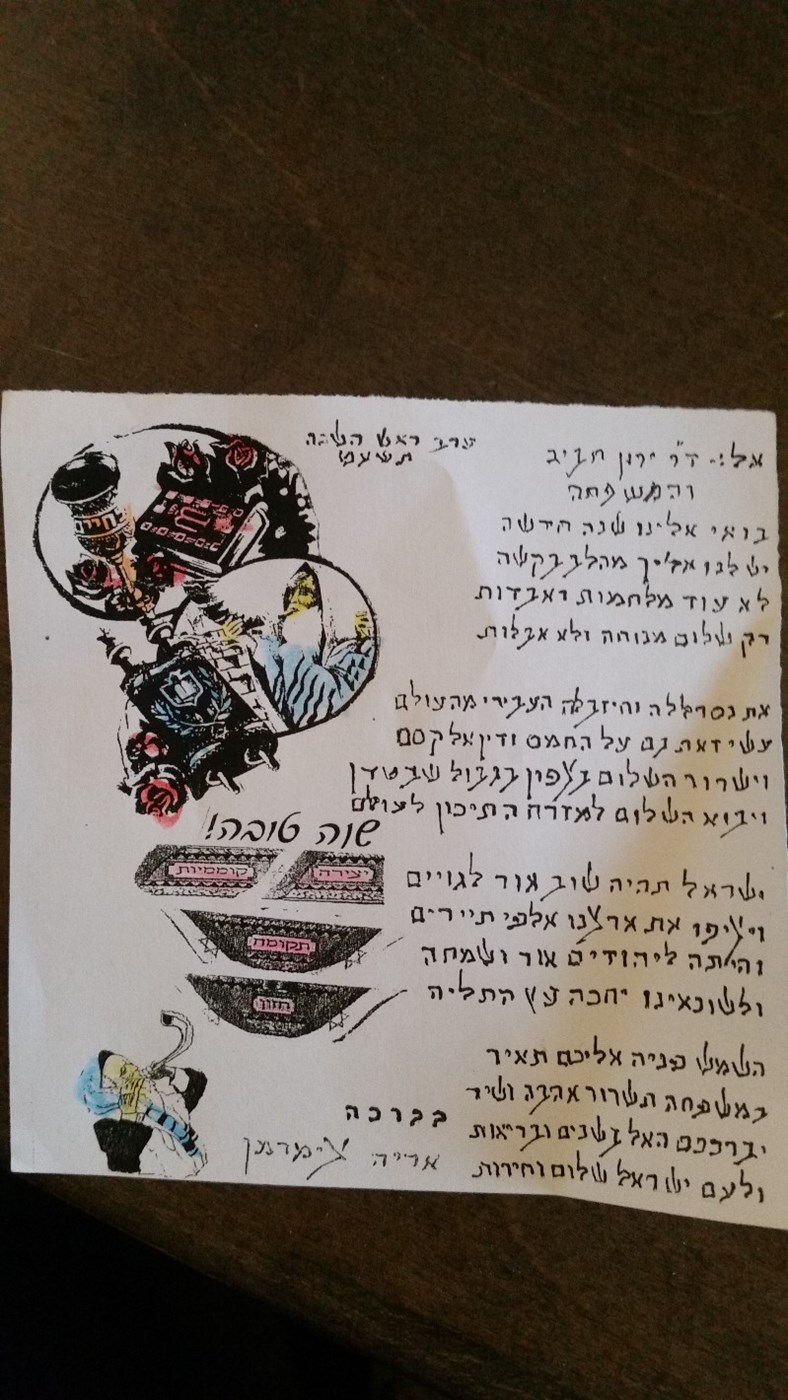 אל:- ד"ר ירון חביב
והמשפחה
ערב ראש השנה
תשע"ט
בואי אלינו שנה חדשה
יש לנו אליך מהלב בקשה
לא עוד מלחמות ואבדות
רק שלום מנוחה ולא אבלות
את נסראללה והיזבלה העבירי מהעולם
עשי זאת גם על החמס ודין אל קסם
וישרור השלום בצפון בגבול שבטדן
ויבוא השלום למזרח התיכון לעולם
ישראל תהיה שוב אור לגויים
ויציפו את ארצנו אלפי תיירים
והיתה ליהודים אור ושמחה
ולשונאינו יחכה עץ התליה
השמש פניה אליכם תאיר
במשפחה תשרור אהבה ושיר
יברככם האל בשנים ובריאות
ולעם ישראל שלום וחירות
בברכה
אריה צימרמן
לחיים
שנה טובה!
יצירה
קוממיות
תקומה
חזון